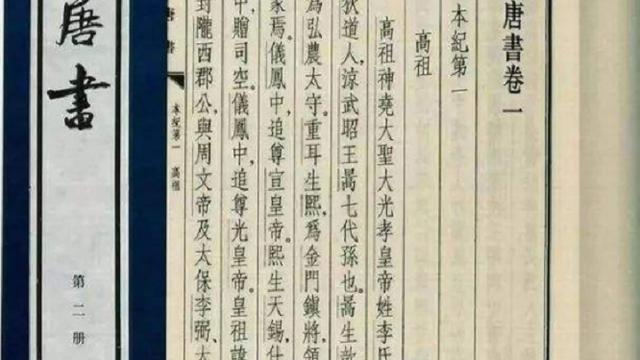 唐書
第二册
唐書卷一
本紀第一
高祖
高祖神堯大聖大光孝皇帝姓李氏
狄道人，涼武昭王暠七代孫也。暠生歆
爲弘農太守。重耳生熙，爲金門鎮將，領
家焉。儀鳳中，追尊宣皇帝。熙生天錫，仕
中，贈司空。儀鳳中，追尊光皇帝。皇祖諱
封隴西郡公，與周文帝及太保李弼、大
唐書
本紀第一
高祖